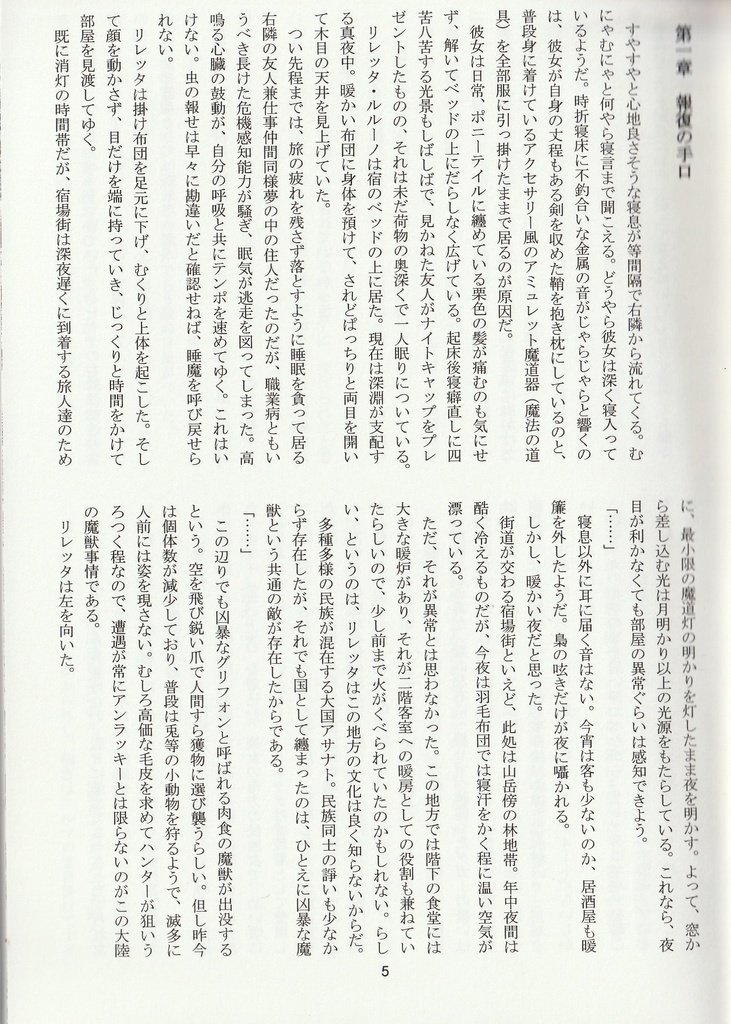 第一章　報復の手口
　すやすやと心地良さそうな寝息が等間隔で右隣から流れてくる。む
にゃむにゃと何やら寝言まで聞こえる。どうやら彼女は深く寝入って
いるようだ。時折寝床に不釣合いな金属の音がじゃらじゃらと響くの
は、彼女が自身の丈程もある剣を収めた鞘を抱き枕にしているのと、
普段身に着けているアクセサリー風のアミュレット魔道器（魔法の道
具）を全部服に引っ掛けたままで居るのが原因だ。
　彼女は日常、ポニーテイルに纏めている栗色の髪が痛むのも気にせ
ず、解いてベッドの上にだらしなく広げている。起床後寝癖直しに四
苦八苦する光景もしばしばで、見かねた友人がナイトキャップをプレ
ゼントしたものの、それは未だ荷物の奥深くで一人眠りについている。
　リレッタ・ルルーノは宿のベッドの上に居た。現在は深淵が支配す
る真夜中。暖かい布団に身体を預けて、されどぱっちりと両目を開い
て木目の天井を見上げていた。
　つい先程までは、旅の疲れを残さず落とすように睡眠を貪って居る
右隣の友人兼仕事仲間同様夢の中の住人だったのだが、職業病ともい
うべき長けた危機感知能力が騒ぎ、眠気が逃走を図ってしまった。高
鳴る心臓の鼓動が、自分の呼吸と共にテンポを速めてゆく。これはい
けない。虫の報せは早々に勘違いだと確認せねば、睡魔を呼び戻せら
れない。
　リレッタは掛け布団を足元に下げ、むくりと上体を起こした。そし
て顔を動かさず、目だけを端に持っていき、じっくりと時間をかけて
部屋を見渡してゆく。
　既に消灯の時間帯だが、宿場街は深夜遅くに到着する旅人達のため
に、最小限の魔道灯の明かりを灯したまま夜を明かす。よって、窓か
ら差し込む光は月明かり以上の光源をもたらしている。これなら、夜
目が利かなくても部屋の異常ぐらいは感知できよう。
「……」
　寝息以外に耳に届く音はない。今宵は客も少ないのか、居酒屋も暖
簾を外したようだ。梟の呟きだけが夜に囁かれる。
　しかし、暖かい夜だと思った。
　街道が交わる宿場街といえど、此処は山岳傍の林地帯。年中夜間は
酷く冷えるものだが、今夜は羽毛布団では寝汗をかく程に温い空気が
漂っている。
　ただ、それが異常とは思わなかった。この地方では階下の食堂には
大きな暖炉があり、それが二階客室への暖房としての役割も兼ねてい
たらしいので、少し前まで火がくべられていたのかもしれない。らし
い、というのは、リレッタはこの地方の文化は良く知らないからだ。
　多種多様の民族が混在する大国アサナト。民族同士の諍いも少なか
らず存在したが、それでも国として纏まったのは、ひとえに凶暴な魔
獣という共通の敵が存在したからである。
「……」
　この辺りでも凶暴なグリフォンと呼ばれる肉食の魔獣が出没する
という。空を飛び鋭い爪で人間すら獲物に選び襲うらしい。但し昨今
は個体数が減少しており、普段は兎等の小動物を狩るようで、滅多に
人前には姿を現さない。むしろ高価な毛皮を求めてハンターが狙いう
ろつく程なので、遭遇が常にアンラッキーとは限らないのがこの大陸
の魔獣事情である。
　リレッタは左を向いた。
5